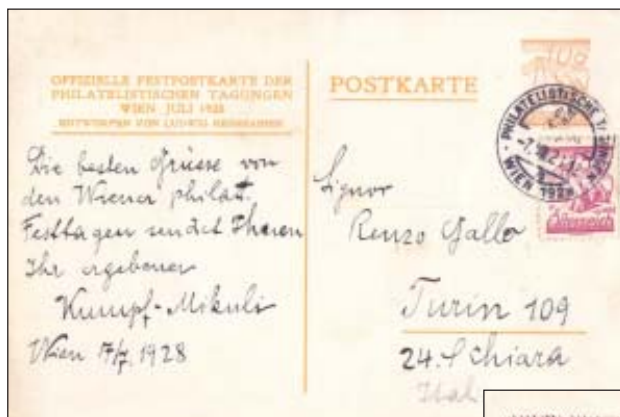 OFFIZIELLE FESTPOSTKARTE DER
PHILATELISTISCHEN TAGUNGEN
WIEN JULI 1928
ENTWORFEN VON LUDWIG
Die besten Grüsse von
den Wiener philat.
Festtagen sendet Ihnen
Ihr ergebener
Kumpf-Mikuli
Wien 7/7. 1928
POSTKARTE
PHILATELISTISCHE
WIEN 1928
Österreich
Signor
Renzo Gallo
Turin 109
24. S Chiara
Ital